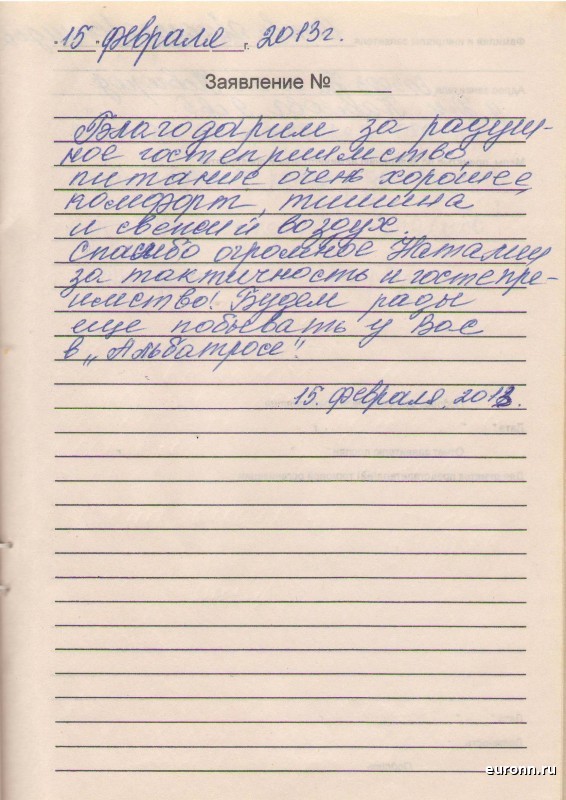 15 февраля г. 2013г.
Заявление № ____
Благодарим за радуш-
ное гостеприимство,
питание очень хорошее,
комфорт, тишина
и свежий воздух.
Спасибо огромное Наталии
за тактичность и гостепре-
имство! Будем рады
еще побывать у Вас
в „Альбатросе".
15. февраля, 2013.
euronn.ru